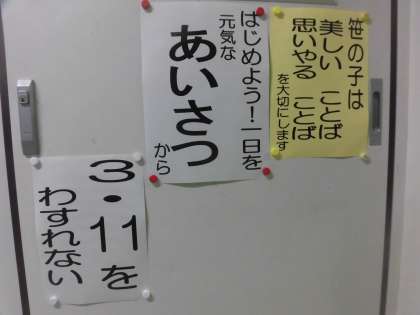 笹の子は
美しい ことば
思いやる ことば
を大切にします
はじめよう!一日を
元気な
あいさつ
から
3・11を
わすれない